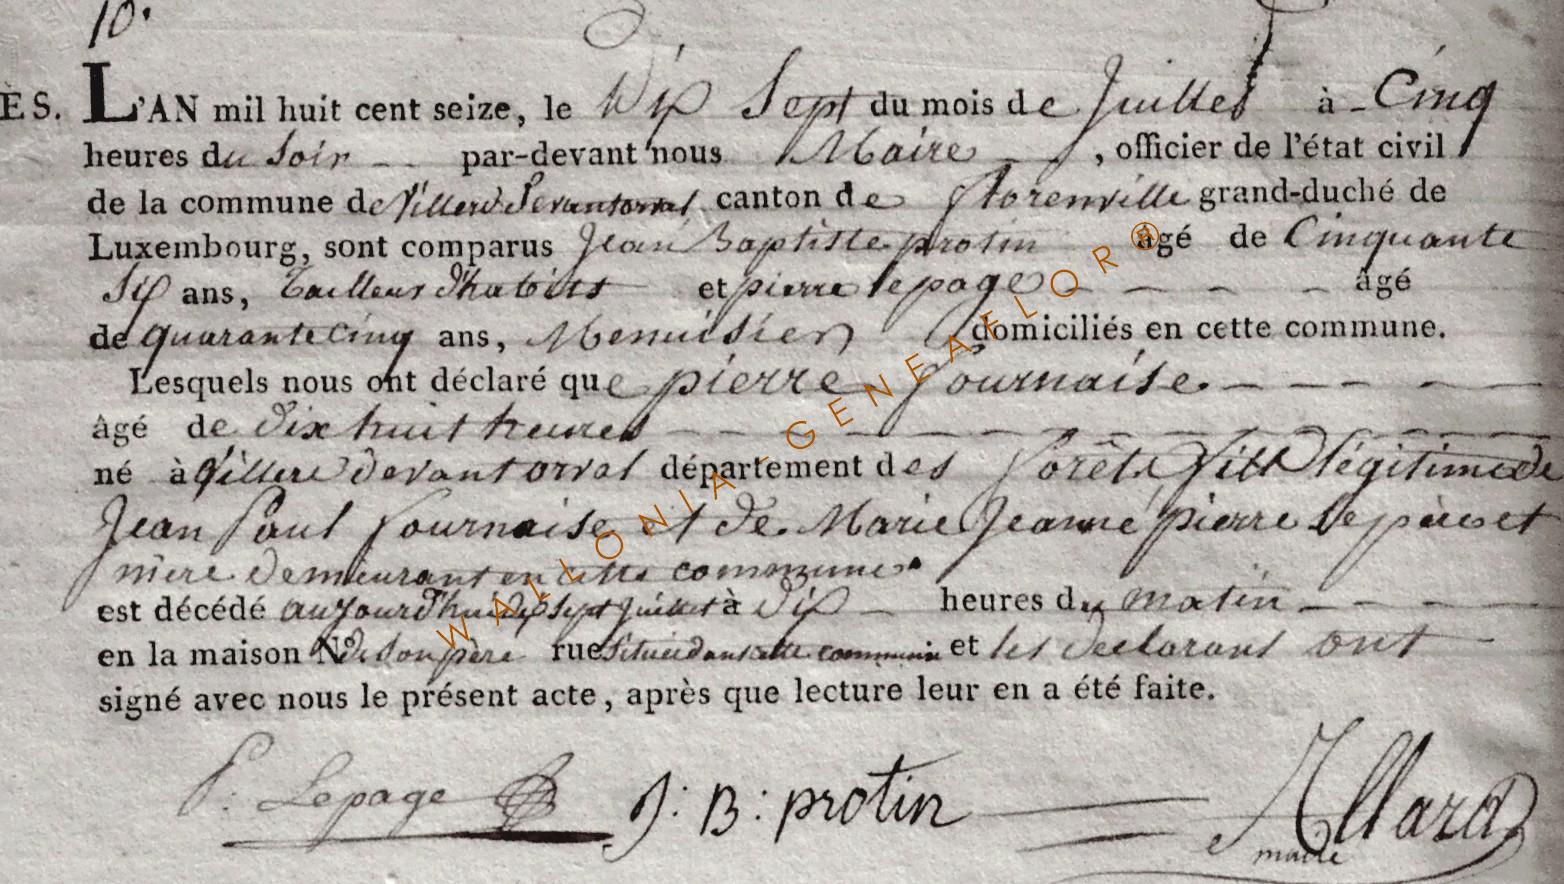 10.
ÈS. L'AN mil huit cent seize, le Dix Sept du mois de Juillet à Cinq
heures du Soir par-devant nous Maire, officier de l'état civil
de la commune de Villers Devant orval canton de florenville grand-duché de
Luxembourg, sont comparus Jean Baptiste protin âgé de Cinquante
Six ans, Tailleur d'habits et pierre lepage âgé
de quarante cinq ans, Menuisier domiciliés en cette commune.
Lesquels nous ont déclaré que pierre fournaise.
âgé de dix huit heures
né à Villers devant orval département des forêts fils légitime de
Jean Paul fournaise et de Marie Jeanne pierre Ses père et
mère demeurant en cette commune.
est décédé aujourd'hui dix sept Juillet à Dix heures du matin
en la maison N° de son père rue Située dans cette commune et les déclarans ont
signé avec nous le présent acte, après que lecture leur en a été faite.
P: Lepage J: B: protin Allard
maire
WALLONIA-GENEAFLOR®